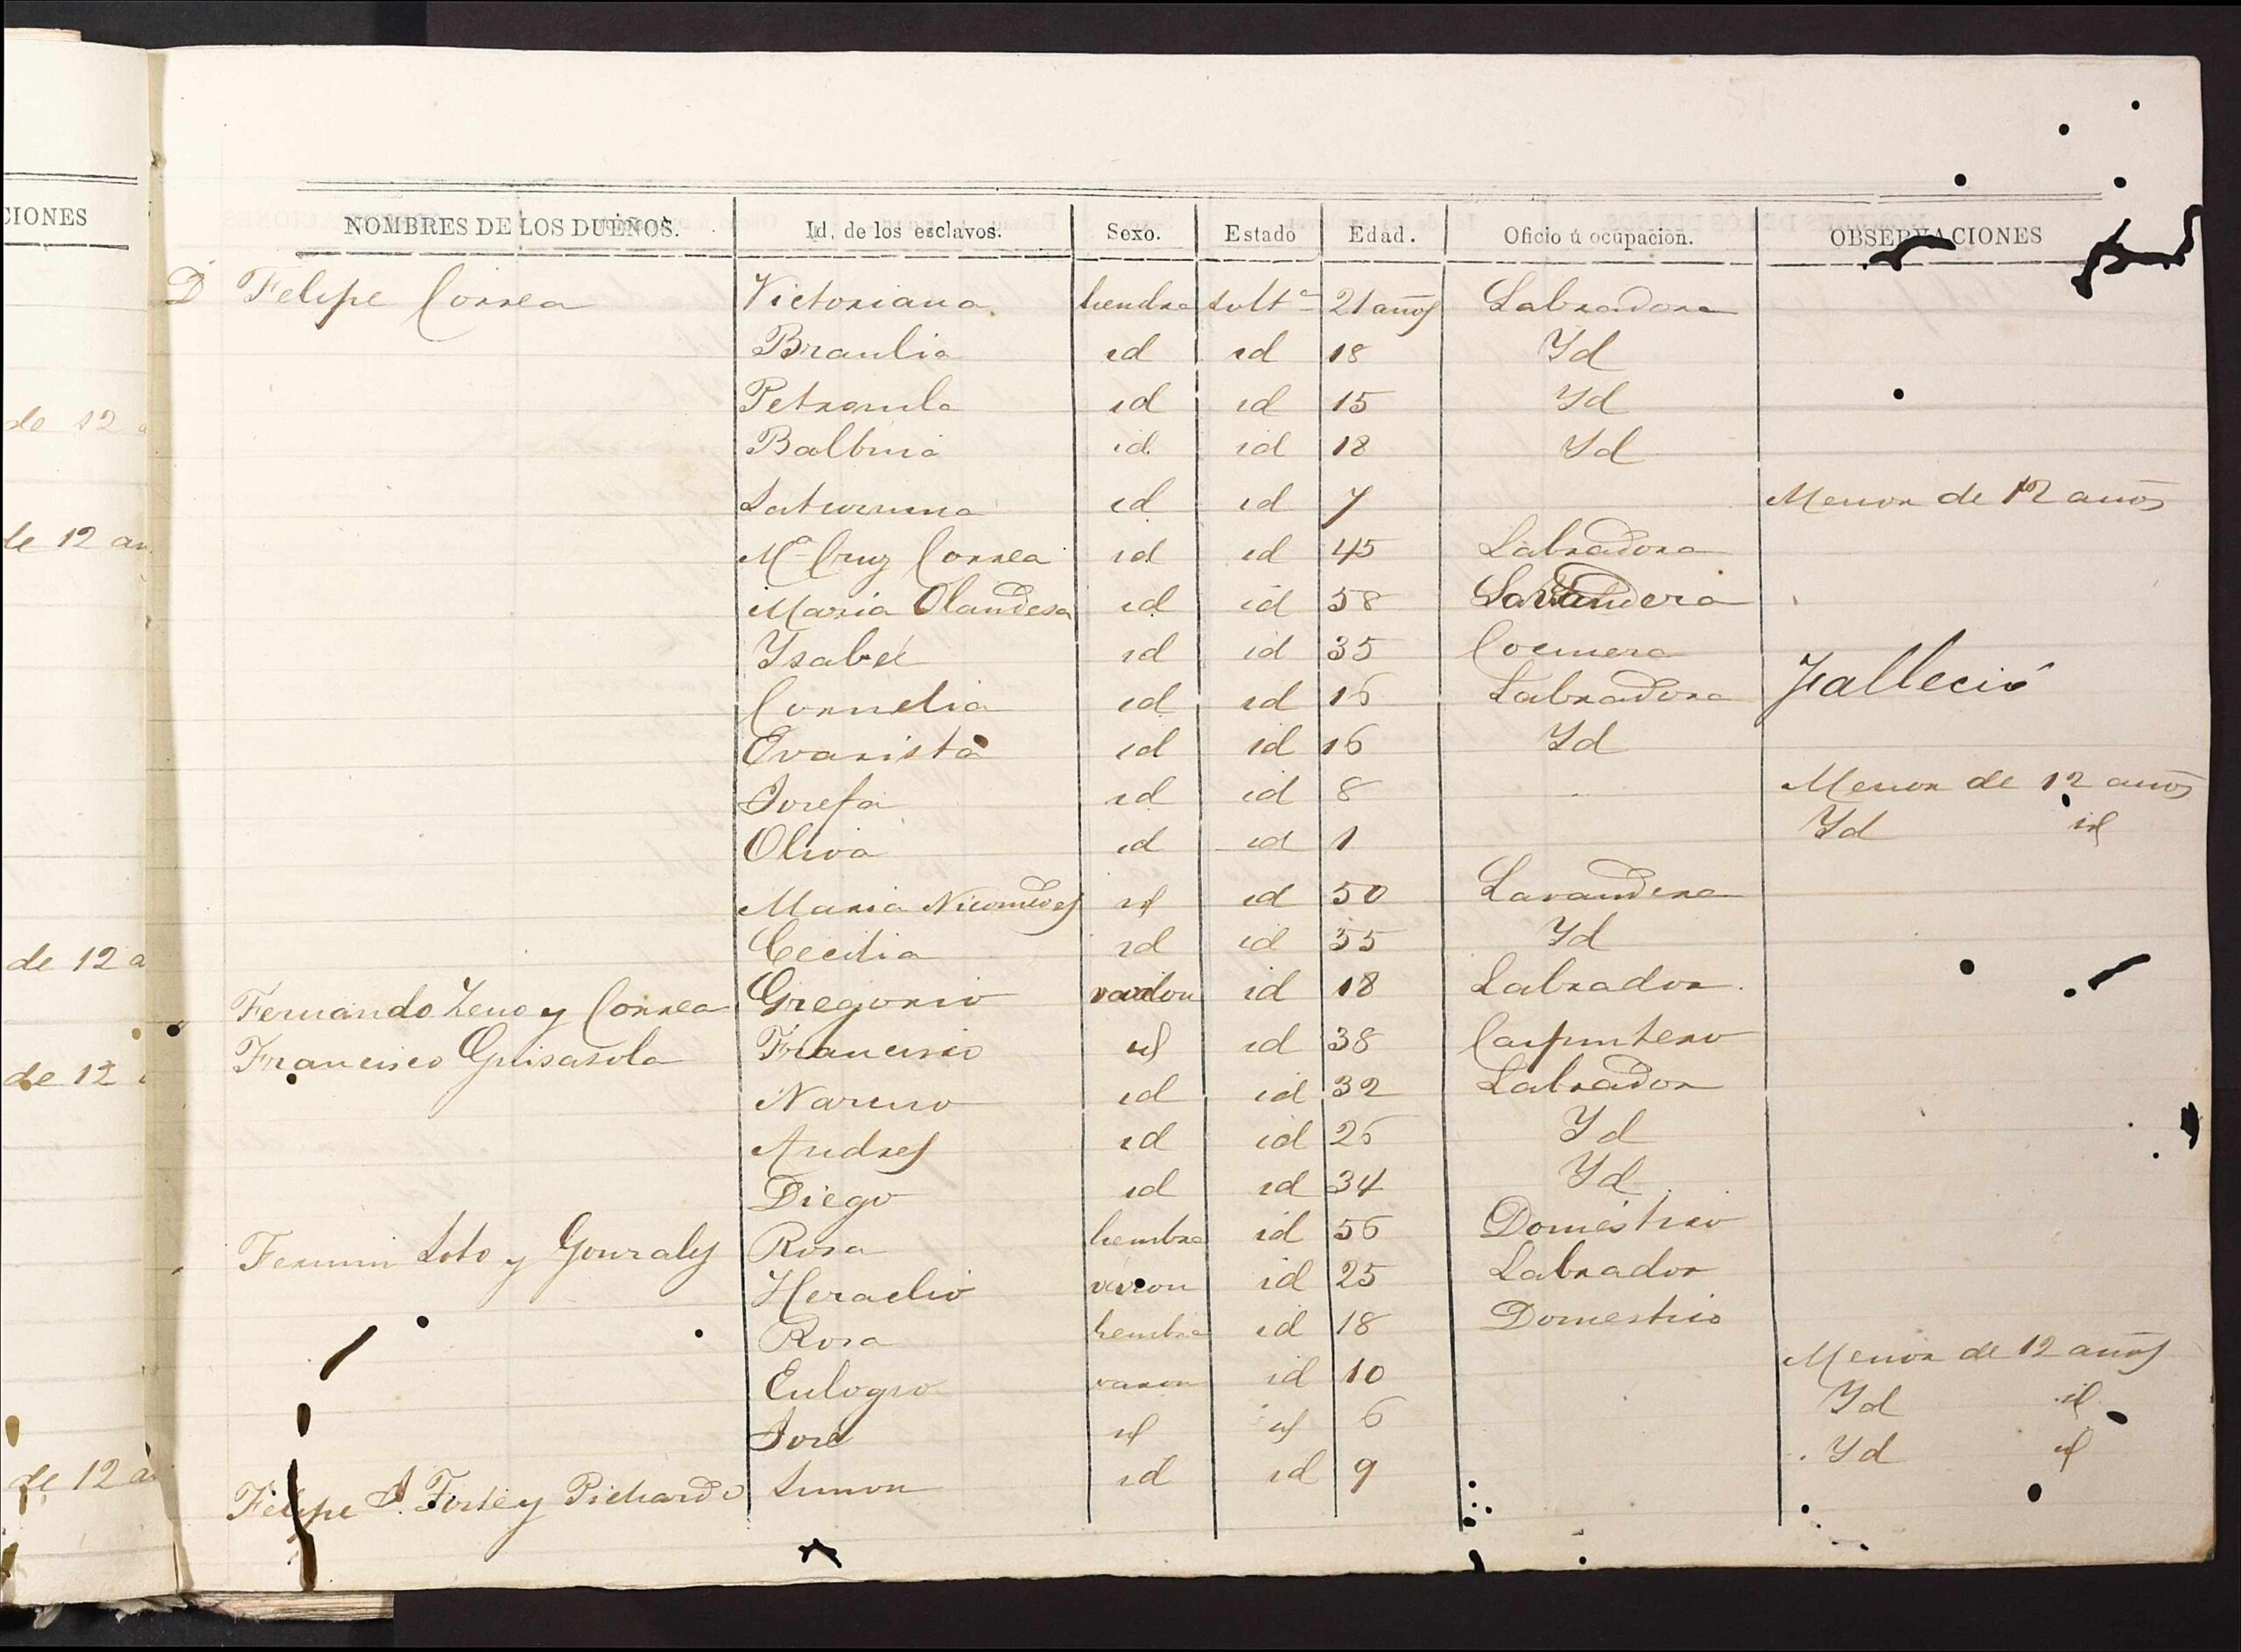 CIONES
de 12 a
de 12 an
de 12 a
de 12
de 12 a
NOMBRES DE LOS DUEÑOS. Id. de los esclavos. Sexo. Estado Edad. Oficio ú ocupacion. OBSERVACIONES
D Felipe Correa Victoriana hembra solt.ª 21 años Labradora
Braulia id id 18 Yd
Petronila id id 15 Yd
Balbina id id 18 Yd
Saturnina id id 7 Menor de 12 años
M.ª Cruz Correa id id 45 Labradora
Maria Olandesa id id 58 Lavandera
Ysabel id id 35 Cocinera
Cornelia id id 16 Labradora Falleció
Evarista id id 16 Yd
Josefa id id 8 Menor de 12 años
Oliva id id 1 Yd id
Maria Nicomedes id id 50 Lavandera
Cecilia id id 35 Yd
Fernando Zeno y Correa Gregorio varon id 18 Labrador
Francisco Guisasola Francisco id id 38 Carpintero
Narciso id id 32 Labrador
Andres id id 26 Yd
Diego id id 34 Yd
Fermin Soto y Gonzales Rosa hembra id 56 Doméstico
Heraclio varon id 25 Labrador
Rosa hembra id 18 Domestico
Eulogio varon id 10 Menor de 12 años
José id id 6 Yd id
Felipe Pichardo Simon id id 9 Yd id